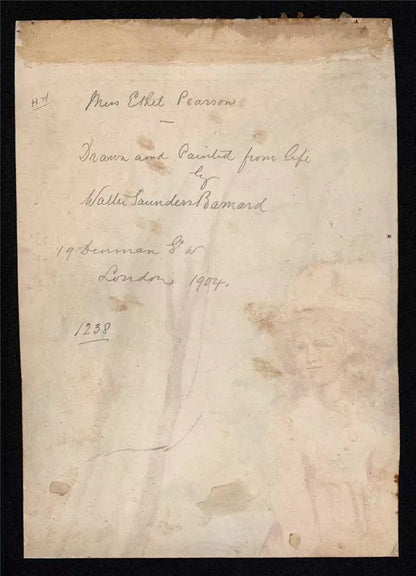 H.A
Miss Ethel Pearson
Drawn and Painted from life
by
Walter Saunders Barnard
19 Denman St W
London 1904.
1238